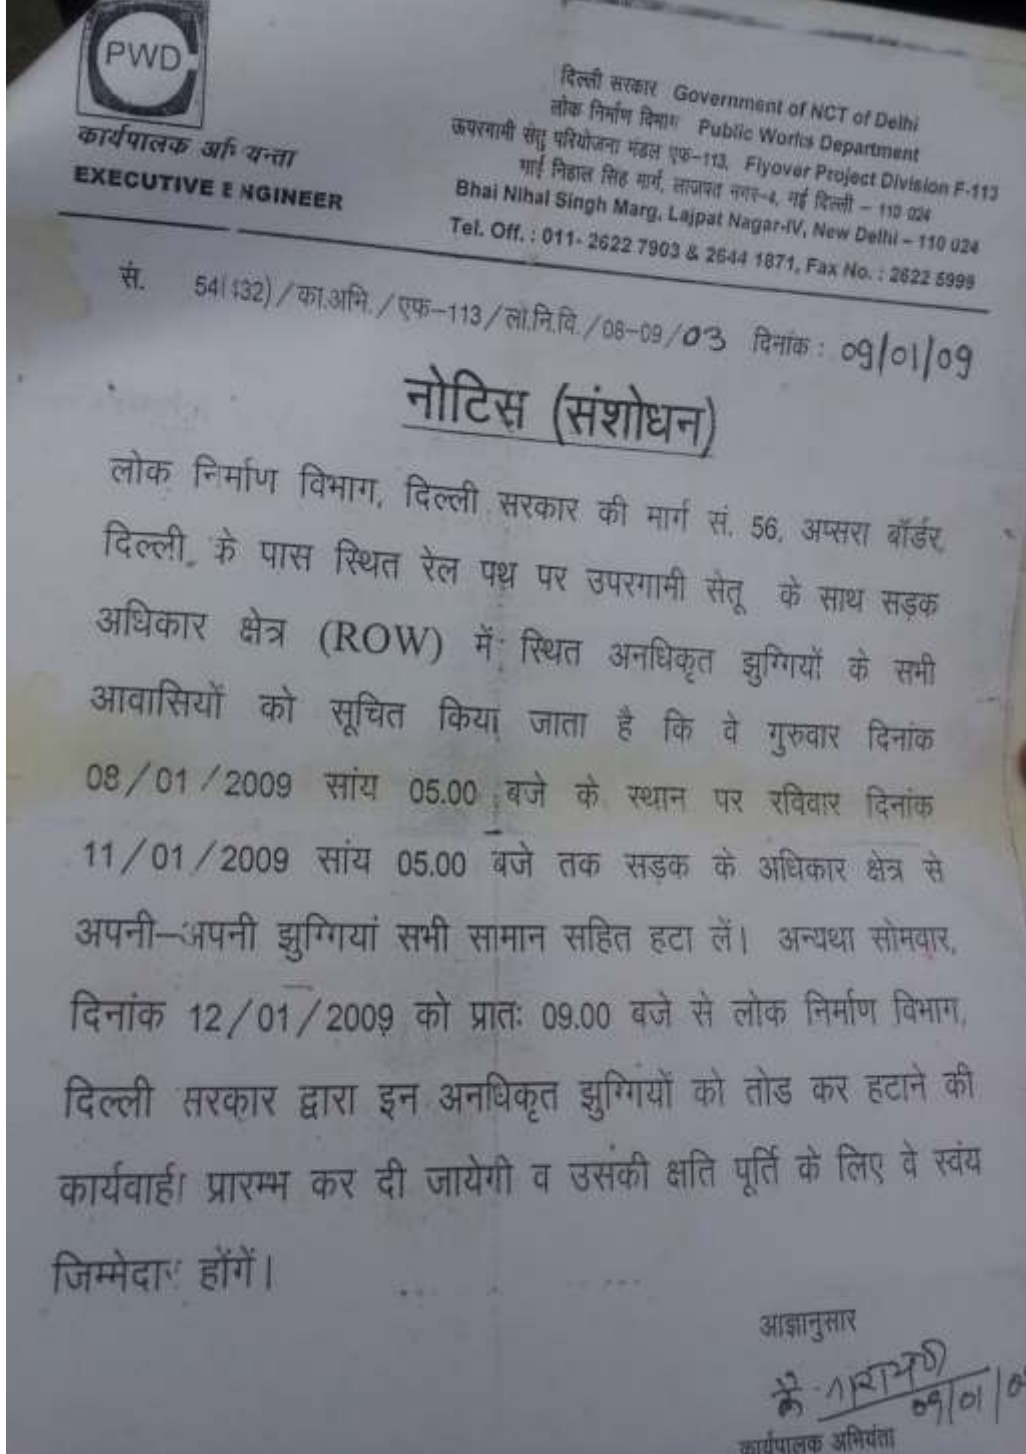 PWD
कार्यपालक अभियन्ता
EXECUTIVE ENGINEER
दिल्ली सरकार Government of NCT of Delhi
लोक निर्माण विभाग Public Works Department
ऊपरगामी सेतु परियोजना मंडल एफ-113, Flyover Project Division F-113
भाई निहाल सिंह मार्ग, लाजपत नगर-4, नई दिल्ली – 110 024
Bhai Nihal Singh Marg, Lajpat Nagar-IV, New Delhi – 110 024
Tel. Off. : 011- 2622 7903 & 2644 1871, Fax No. : 2622 5999
सं. 54(132)/का.अभि./एफ-113/लो.नि.वि./08-09/03 दिनांक : 09/01/09
नोटिस (संशोधन)
लोक निर्माण विभाग, दिल्ली सरकार की मार्ग सं. 56, अप्सरा बॉर्डर,
दिल्ली, के पास स्थित रेल पथ पर उपरगामी सेतू के साथ सड़क
अधिकार क्षेत्र (ROW) में स्थित अनधिकृत झुग्गियों के सभी
आवासियों को सूचित किया जाता है कि वे गुरुवार दिनांक
08/01/2009 सांय 05.00 बजे के स्थान पर रविवार दिनांक
11/01/2009 सांय 05.00 बजे तक सड़क के अधिकार क्षेत्र से
अपनी–अपनी झुग्गियां सभी सामान सहित हटा लें। अन्यथा सोमवार,
दिनांक 12/01/2009 को प्रातः 09.00 बजे से लोक निर्माण विभाग,
दिल्ली सरकार द्वारा इन अनधिकृत झुग्गियों को तोड कर हटाने की
कार्यवाही प्रारम्भ कर दी जायेगी व उसकी क्षति पूर्ति के लिए वे स्वंय
जिम्मेदार होंगें।
आज्ञानुसार
09/01/0
कार्यपालक अभियंता